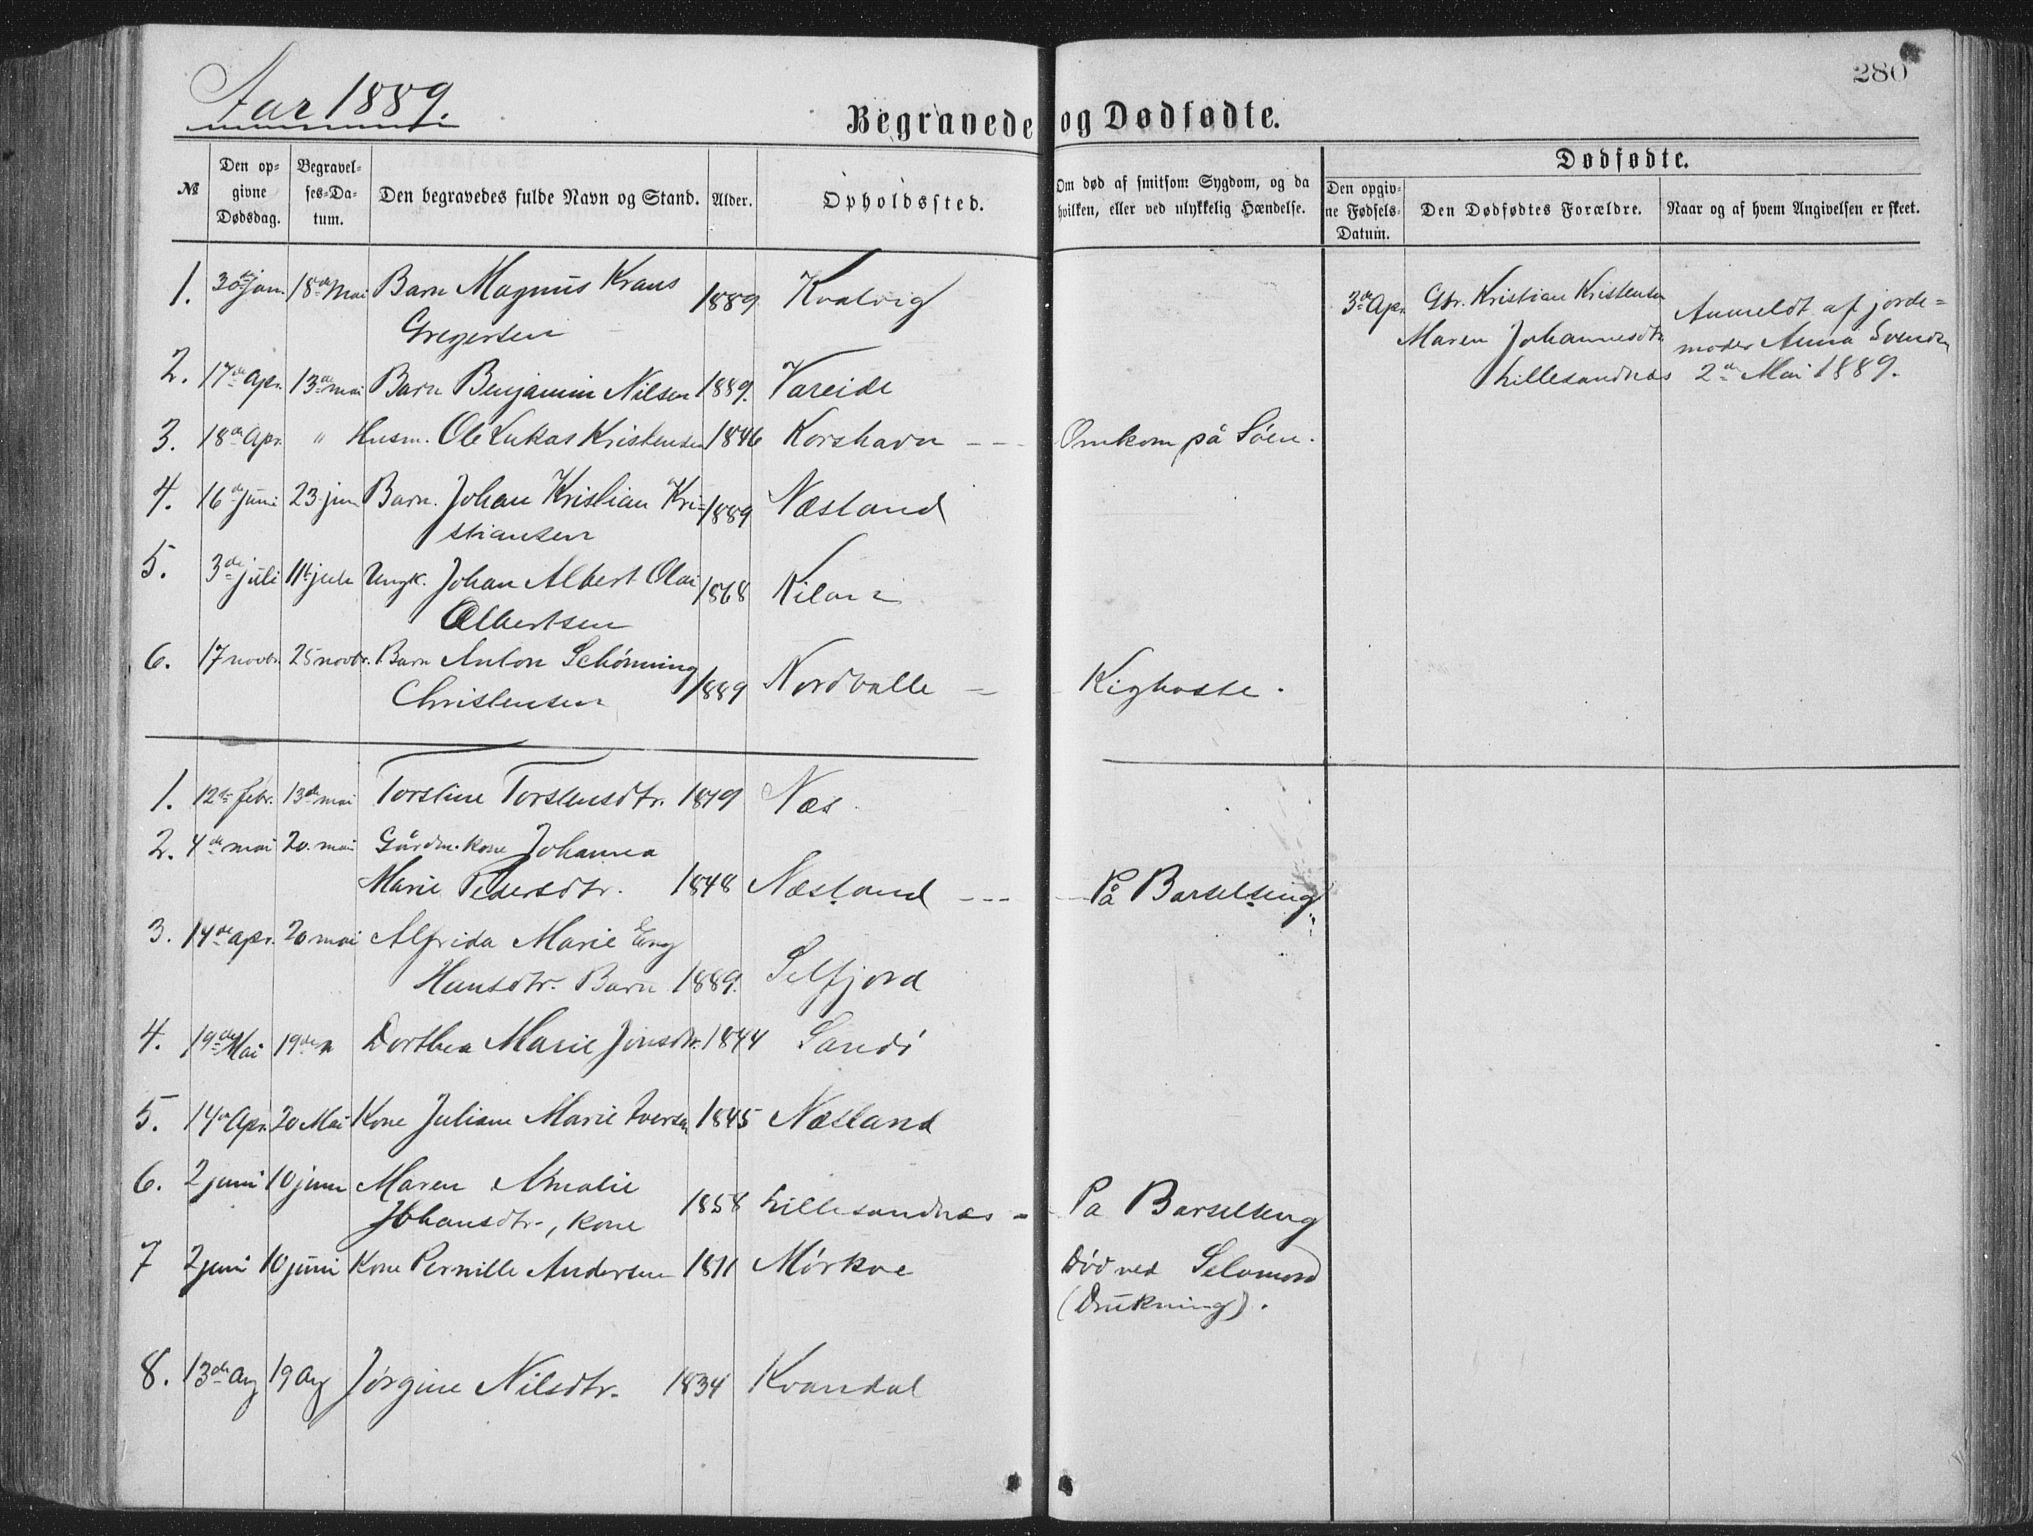 Aar 1889.
280
Begravede og Dødfødte.
№
Den op-
givne
Dødsdag.
Begravel-
ses-Da-
tum.
Den begravedes fulde Navn og Stand.
Alder.
Opholdssted.
Om død af smitsom Sygdom, og da
hvilken, eller ved ulykkelig Hændelse.
Dødfødte.
Den opgiv-
ne Fødsels-
Datum.
Den Dødfødtes Forældre.
Naar og af hvem Angivelsen er skeet.
1. 30te jan. 18de Mai Barn Magnus Kraus 1889. Kvalvig
Gregersen
3de Apr. Gbr. Kristian Kristensen
Maren Johannesdtr.
Lillesandnæs
Anmeldt af jorde-
moder Anna Svendsen
2de Mai 1889.
2. 17de Apr. 13de mai Barn Benjamin Nilsen 1889. Vareide
3. 18de Apr. " Husm. Ole Lukas Kristensen 1846 Korshavn - - - Omkom på Søen.
4. 16de juni 23 jun Barn. Johan Kristian Kri- 1889 Næsland
stiansen
5. 3de juli 11te juli Ungk. Johan Albert Olai 1868
Albertsen
6. 17 novbr. 25 novbr. Barn Anton Schønning 1889 Nordvalle - - Kighoste.
Christensen
1. 12te febr. 13de mai Torstine Torstensdtr. 1819 Næs
2. 4de mai 20. mai Gårdm. kone Johanna
Marie Pedersdtr. 1848 Næsland - - - På Barselseng
3. 14de apr. 20 mai Alfrida Marie Eng
Hansdtr. Barn 1889. Selfjord
4. 19de Mai 19de Dorthea Marie Jonsdtr. 1844 Sandø
5. 14de Apr. 20 Mai Kone Juliane Marie Iversen 1845 Næsland
6. 2 juni 10 juni Maren Amalie
Johansdtr., kone 1858 Lillesandnæs - - Pa Barselseng
7 2 juni 10 juni Kone Pernille Andersen 1811 Mørkve Død ved Selvmord
(Drukning).
8. 13de Aug 19 Aug Jørgine Nilsdtr. 1834 Kvandal